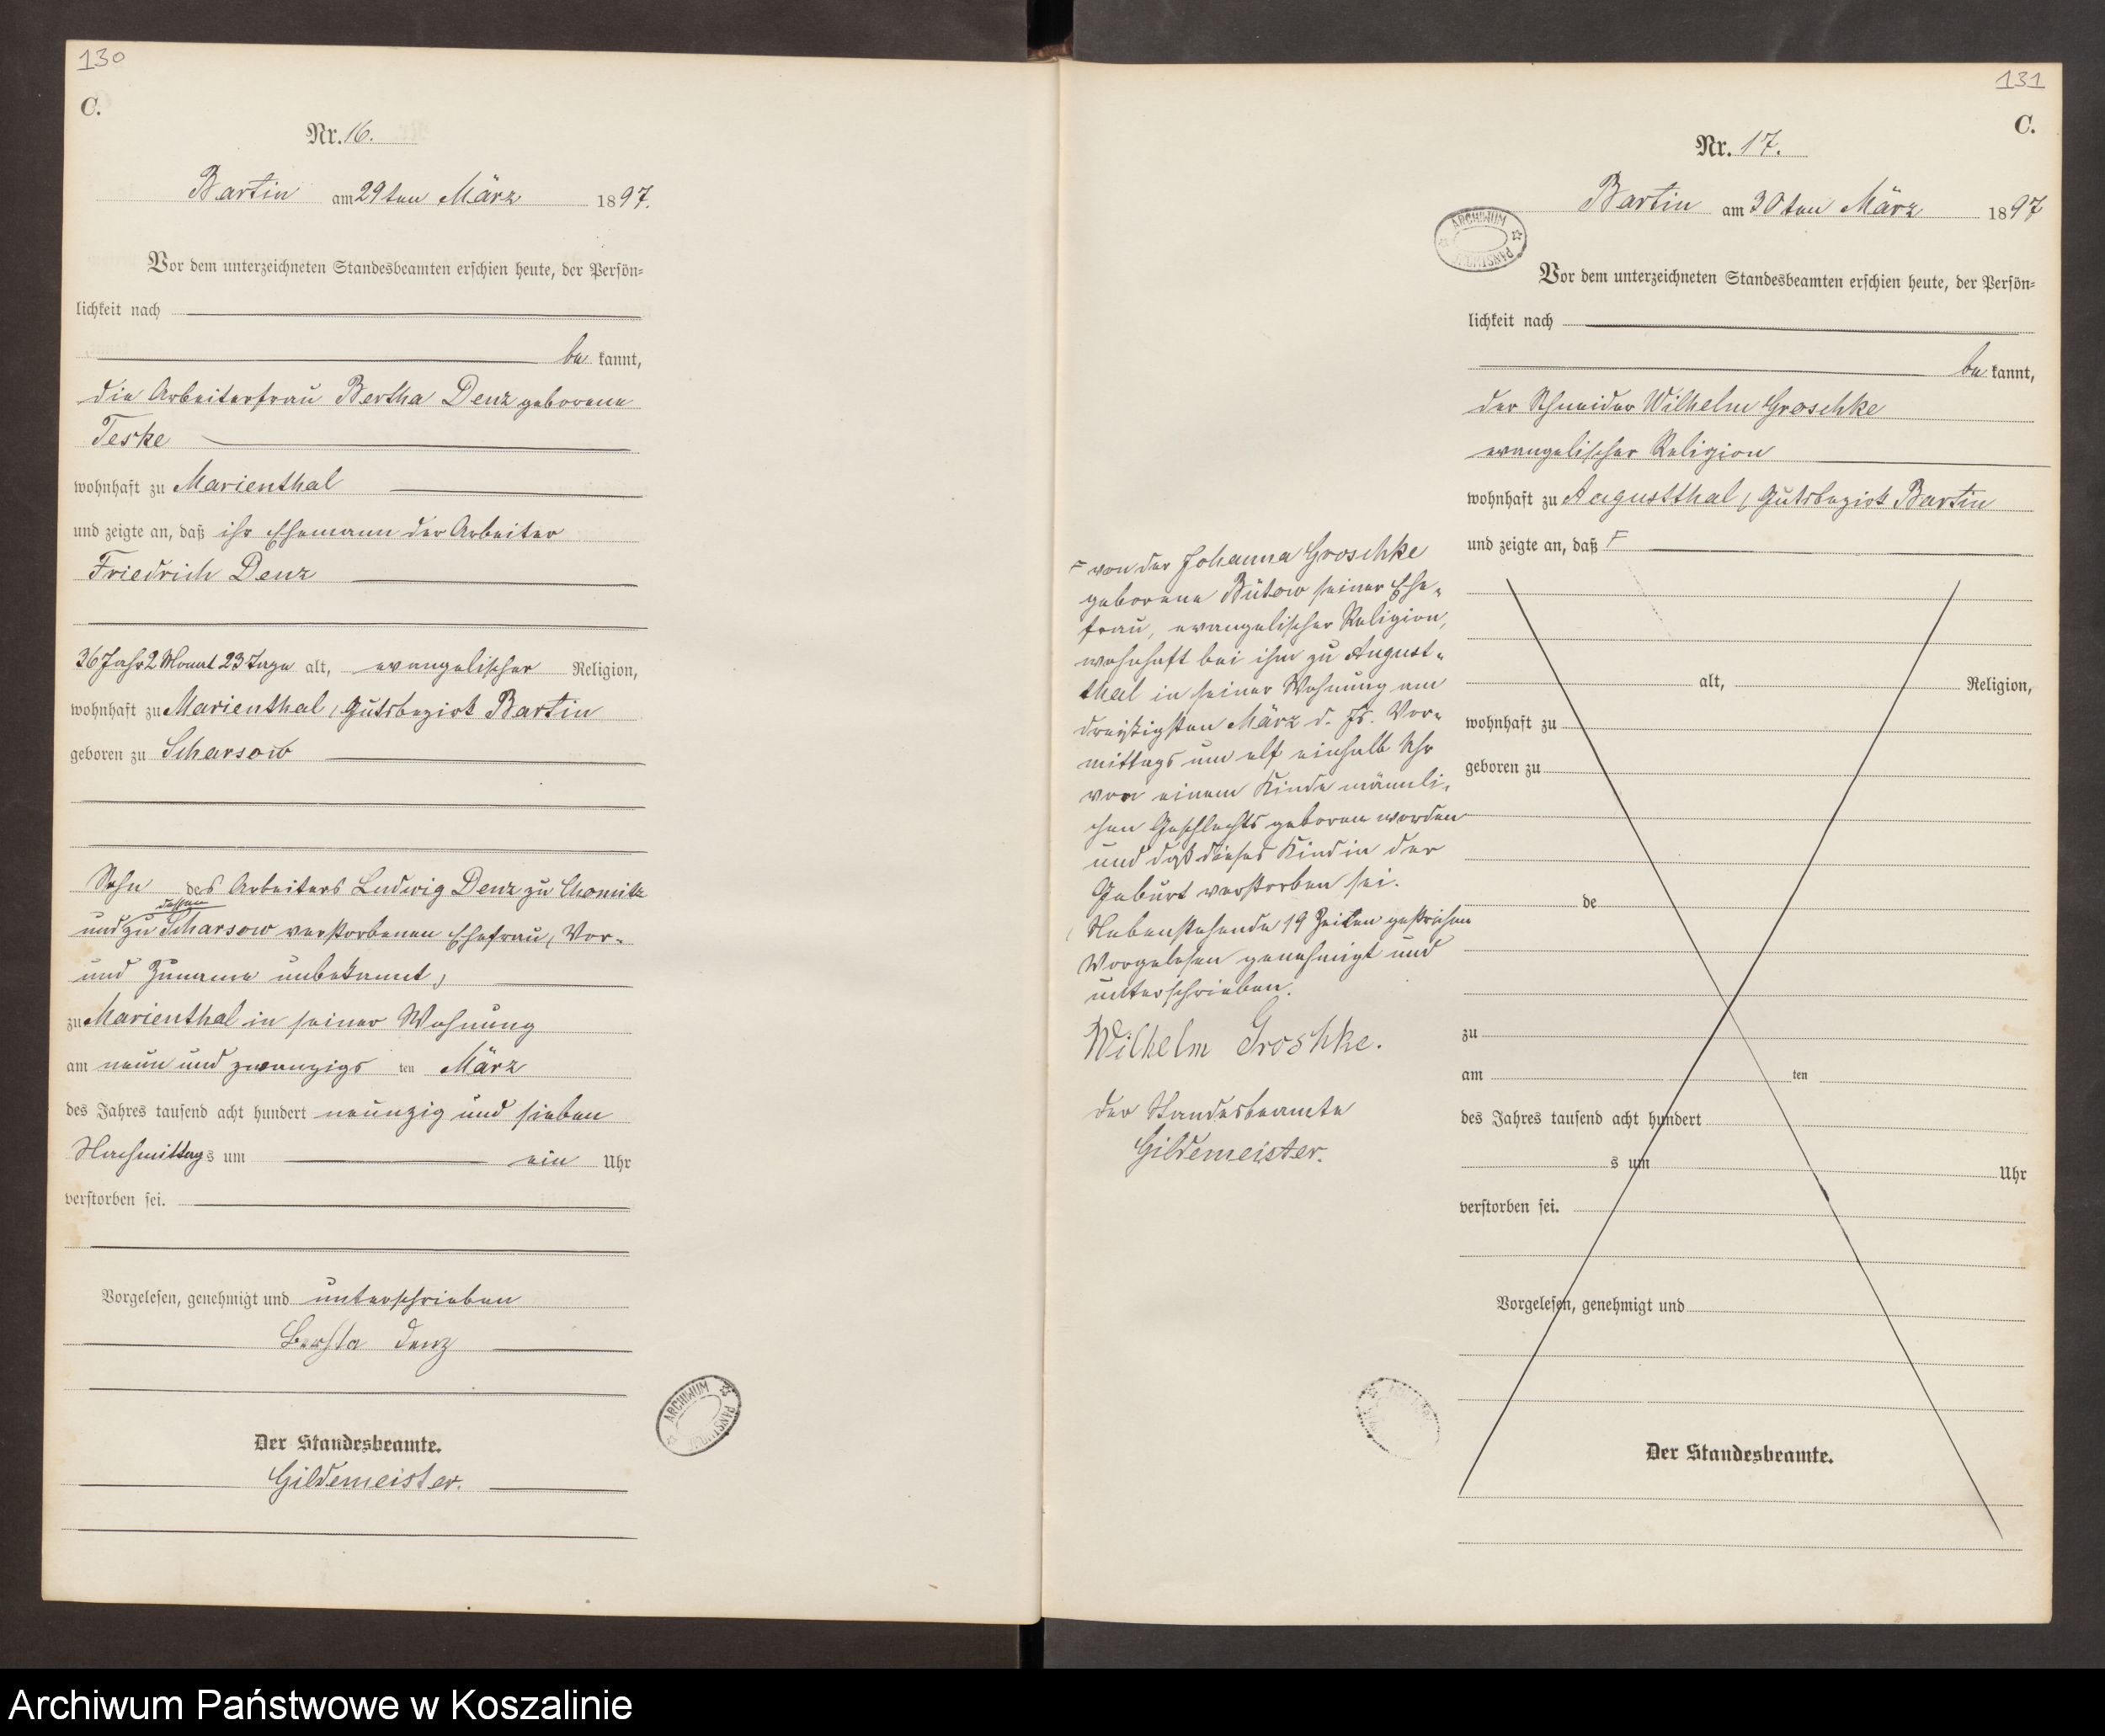 130
C.
Nr. 16.
Bartin am 29ten März 1897.
Vor dem unterzeichneten Standesbeamten erschien heute, der Persön-
lichkeit nach
be kannt,
die Arbeiterfrau Bertha Denz geborene
Teske
wohnhaft zu Marienthal
und zeigte an, daß ihr Ehemann der Arbeiter
Friedrich Denz
36 Jahr 2 Monat 23 Tage alt, evangelischer Religion,
wohnhaft zu Marienthal, Gutsbezirk Bartin
geboren zu Scharsow
Sohn des Arbeiters Ludwig Denz zu Chomitz
dessen
und zu Scharsow verstorbenen Ehefrau, Vor-
und Zuname unbekannt,
zu Marienthal in seiner Wohnung
am neun und zwanzigs ten März
des Jahres tausend acht hundert neunzig und sieben
Nachmittags um ein Uhr
verstorben sei.
Vorgelesen, genehmigt und unterschrieben
Bertha Denz
Der Standesbeamte.
Gildemeister.
ARCHIWUM PAŃSTWOWE
131
C.
Nr. 17.
Bartin am 30ten März 1897
ARCHIWUM PAŃSTWOWE
Vor dem unterzeichneten Standesbeamten erschien heute, der Persön-
lichkeit nach
be kannt,
der Schneider Wilhelm Groschke
evangelischer Religion
wohnhaft zu Augustthal, Gutsbezirk Bartin
und zeigte an, daß F
alt, Religion,
wohnhaft zu
geboren zu
de
zu
am ten
des Jahres tausend acht hundert
s um Uhr
verstorben sei.
Vorgelesen, genehmigt und
Der Standesbeamte.
F von der Johanna Groschke
geborene Bütow seiner Ehe-
frau, evangelischer Religion,
wohnhaft bei ihm zu August-
thal in seiner Wohnung am
dreißigsten März d. Js. Vor-
mittags um elf einhalb Uhr
von einem Kinde männli-
chen Geschlechts geboren worden
und daß dieses Kind in der
Geburt verstorben sei.
Nebenstehende 19 Zeilen gestrichen
Vorgelesen genehmigt und
unterschrieben.
Wilhelm Groshke.
Der Standesbeamte
Gildemeister.
Archiwum Państwowe w Koszalinie